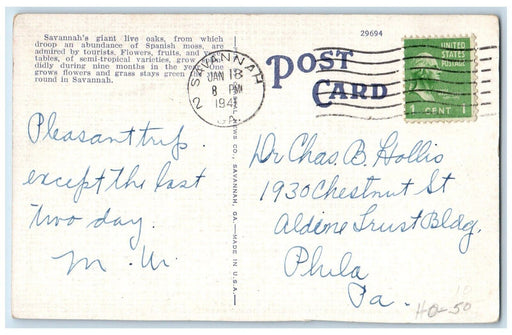 Savannah's giant live oaks, from which
droop an abundance of Spanish moss, are
admired by tourists. Flowers, fruits, and
tables, of semi-tropical varieties, grow
didly during nine months in the year. One
grows flowers and grass stays green
round in Savannah.
29694
POST
CARD
SAVANNAH
2
JAN 18
8 PM
194
GA.
UNITED
STATES
POSTAGE
1 CENT 1
NEWS CO., SAVANNAH, GA. — MADE IN U.S.A.
Pleasant trip
except the last
two day.
M. W.
Dr Chas. B. Hollis
1930 Chestnut St
Aldine Trust Bldg.
Phila
Pa.
10
HO-50